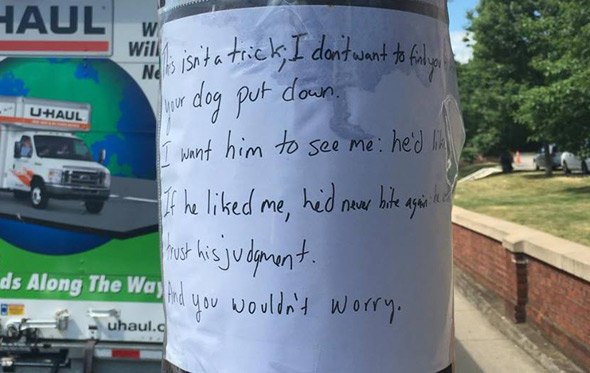 HAUL
W
Wil
Ne
U-HAUL
ds Along The Way
uhaul.c
This isn't a trick; I don't want to find you
your dog put down.
I want him to see me: he'd
If he liked me, he'd never bite again:
trust his judgment.
And you wouldn't worry.